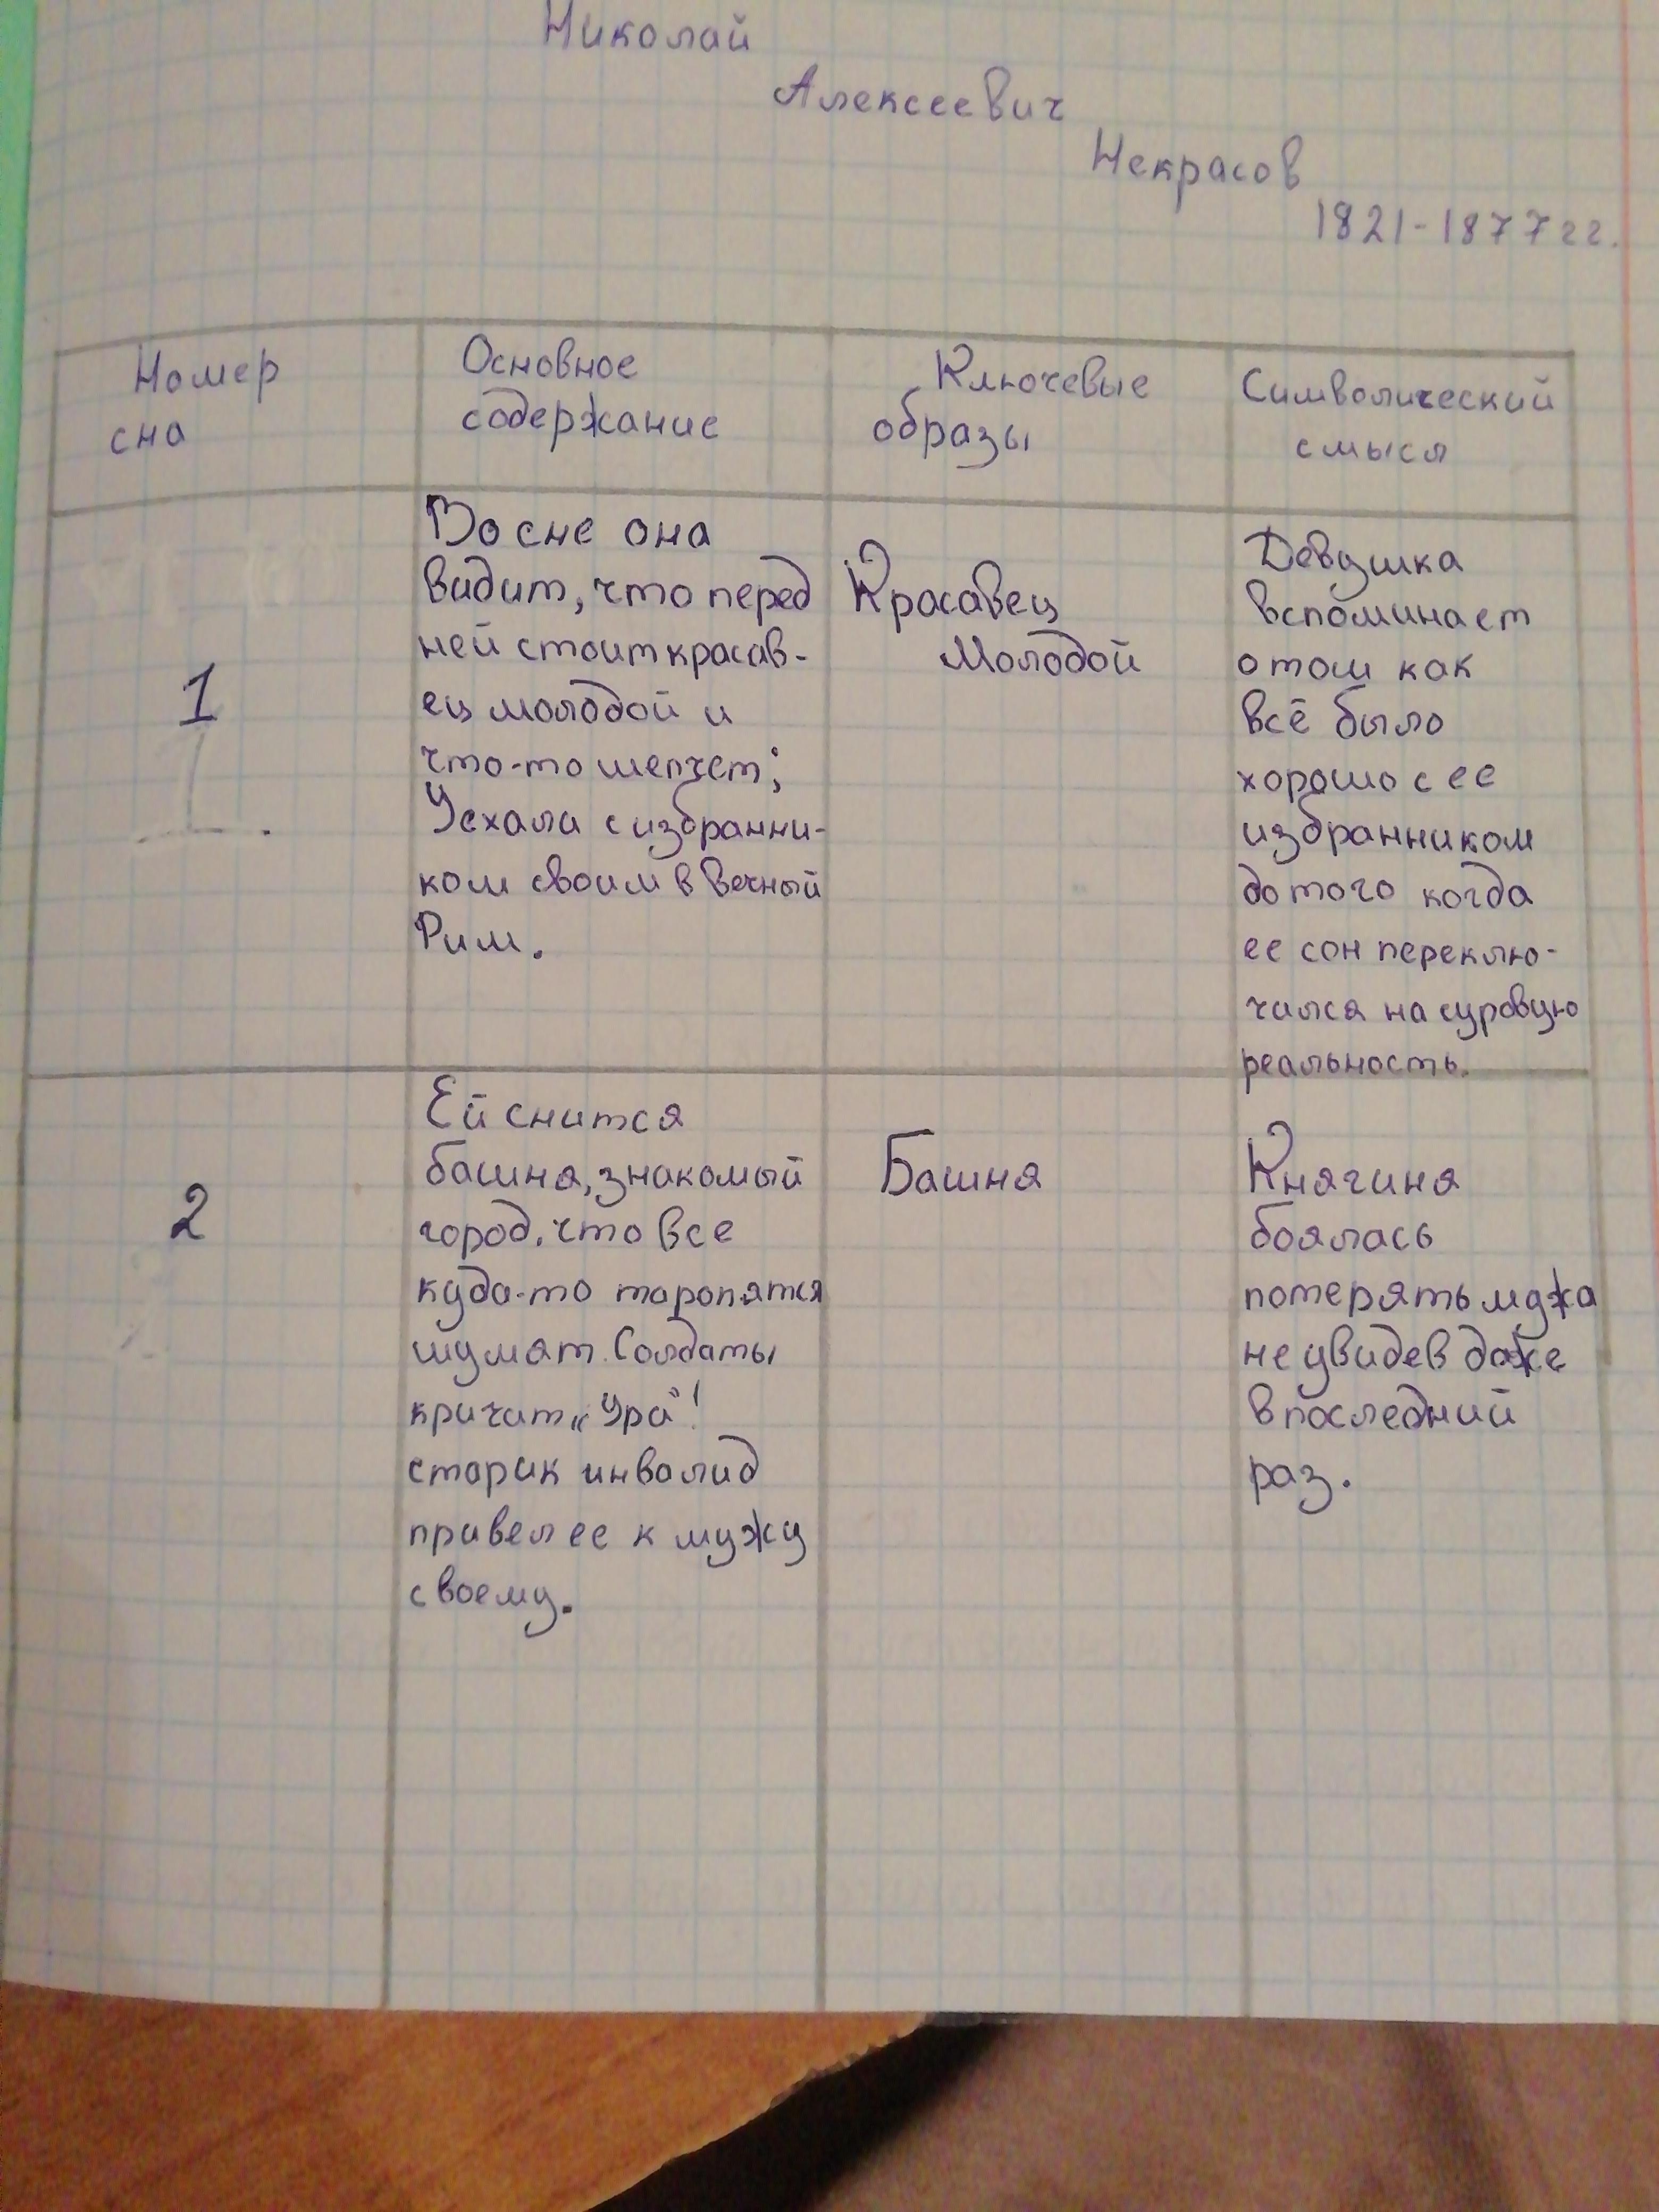 Николай
Алексеевич
Некрасов
1821-1877 гг.
Номер
сна
Основное
содержание
Ключевые
образы
Символический
смысл
1
Во сне она
видит, что перед
ней стоит красав-
ец молодой и
что-то шепчет;
Уехала с избранни-
ком своим в Вечный
Рим.
Красавец
Молодой
Девушка
вспоминает
о том как
всё было
хорошо с ее
избранником
до того когда
ее сон переклю-
чился на суровую
реальность.
2
Ей снится
башня, знакомый
город, что все
куда-то торопятся
шумят. Солдаты
кричат „Ура"!
старик инвалид
привел ее к мужу
своему.
Башня
Княгиня
боялась
потерять мужа
не увидев даже
в последний
раз.